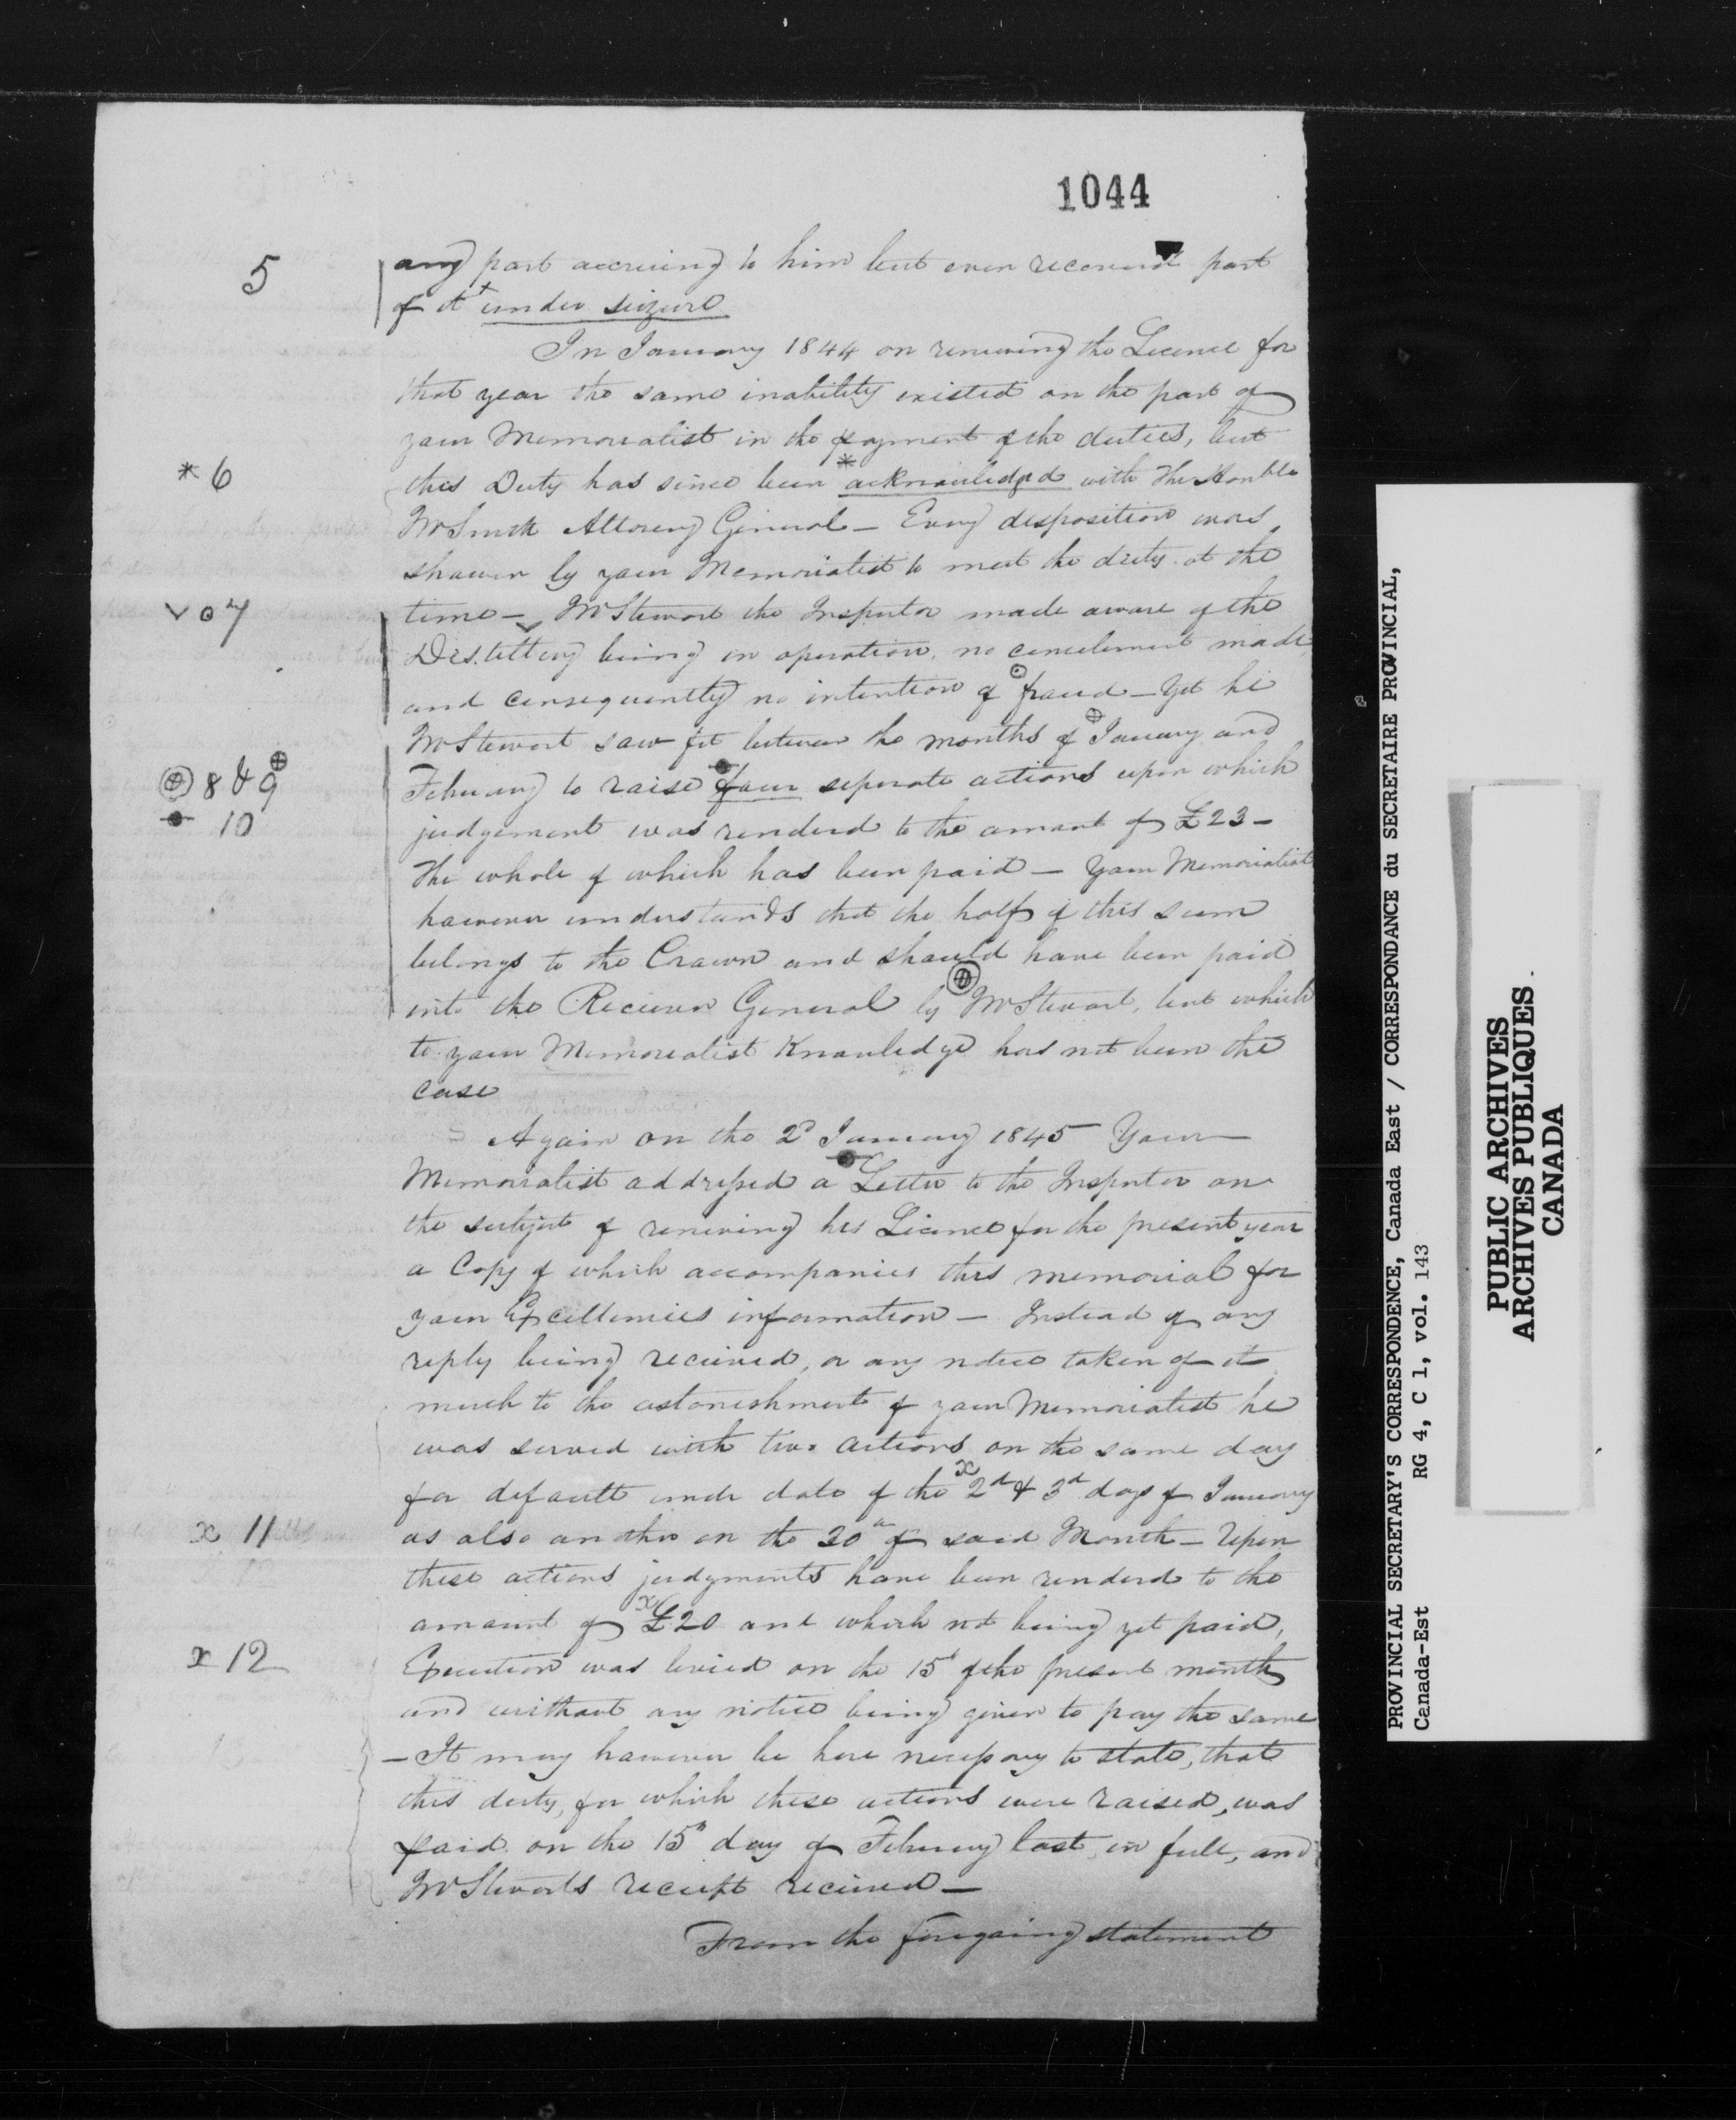 1044
5
any part accruing to him but even recovered part
of it + under seizure
In January 1844 on renewing the Licence for
that year the same inability existed on the part of
your Memorialist in the payment of the duties, but
* 6
this Duty has since been * acknowledged with The Honble
Mr Smith Attorney General — Every disposition was
shown by your Memorialist to meet the duty at the
v o 7
time — Mr Stewart the Inspector made aware of the
Distillery being in operation, no concealment made
and consequently no intention of fraud — Yet he
Mr Stewart saw fit between the months of ⊕ January and
⊕ 8 & 9 ⊕
February to raise four seperate actions upon which
10
judgement was renderd to the amount of £23 —
The whole of which has been paid — Your Memorialist
however understands that the half of this sum
belongs to the Crown and should have been paid
into the Reciever General by ⊕ Mr Stewart, but which
to your Memorialist Knowledge has not been the
case
Again on the 2d January 1845 Your
Memorialist addressed a Letter to the Inspector on
the subject of renewing his Licence for the present year
a Copy of which accompanies this memorial for
your Excellencies information — Instead of any
reply being recieved, or any notice taken of it
much to the astonishment of your Memorialist he
was served with two actions on the same day
for default under date of the x 2d & 3d days of January
x 11
as also another on the 30th of said Month — Upon
these actions judgments have been renderd to the
amount of x £20 and which not being yet paid,
x 12
Execution was levied on the 15th of the present month
and without any notice being given to pay the same
— It may however be here necessary to state, that
this duty, for which these actions were raised, was
paid on the 15th day of February last, in full, and
Mr Stewarts receipt recieved —
From the foregoing statement
PROVINCIAL SECRETARY'S CORRESPONDENCE, Canada East / CORRESPONDANCE du SECRETAIRE PROVINCIAL,
Canada-Est RG 4, C 1, vol. 143
PUBLIC ARCHIVES
ARCHIVES PUBLIQUES
CANADA